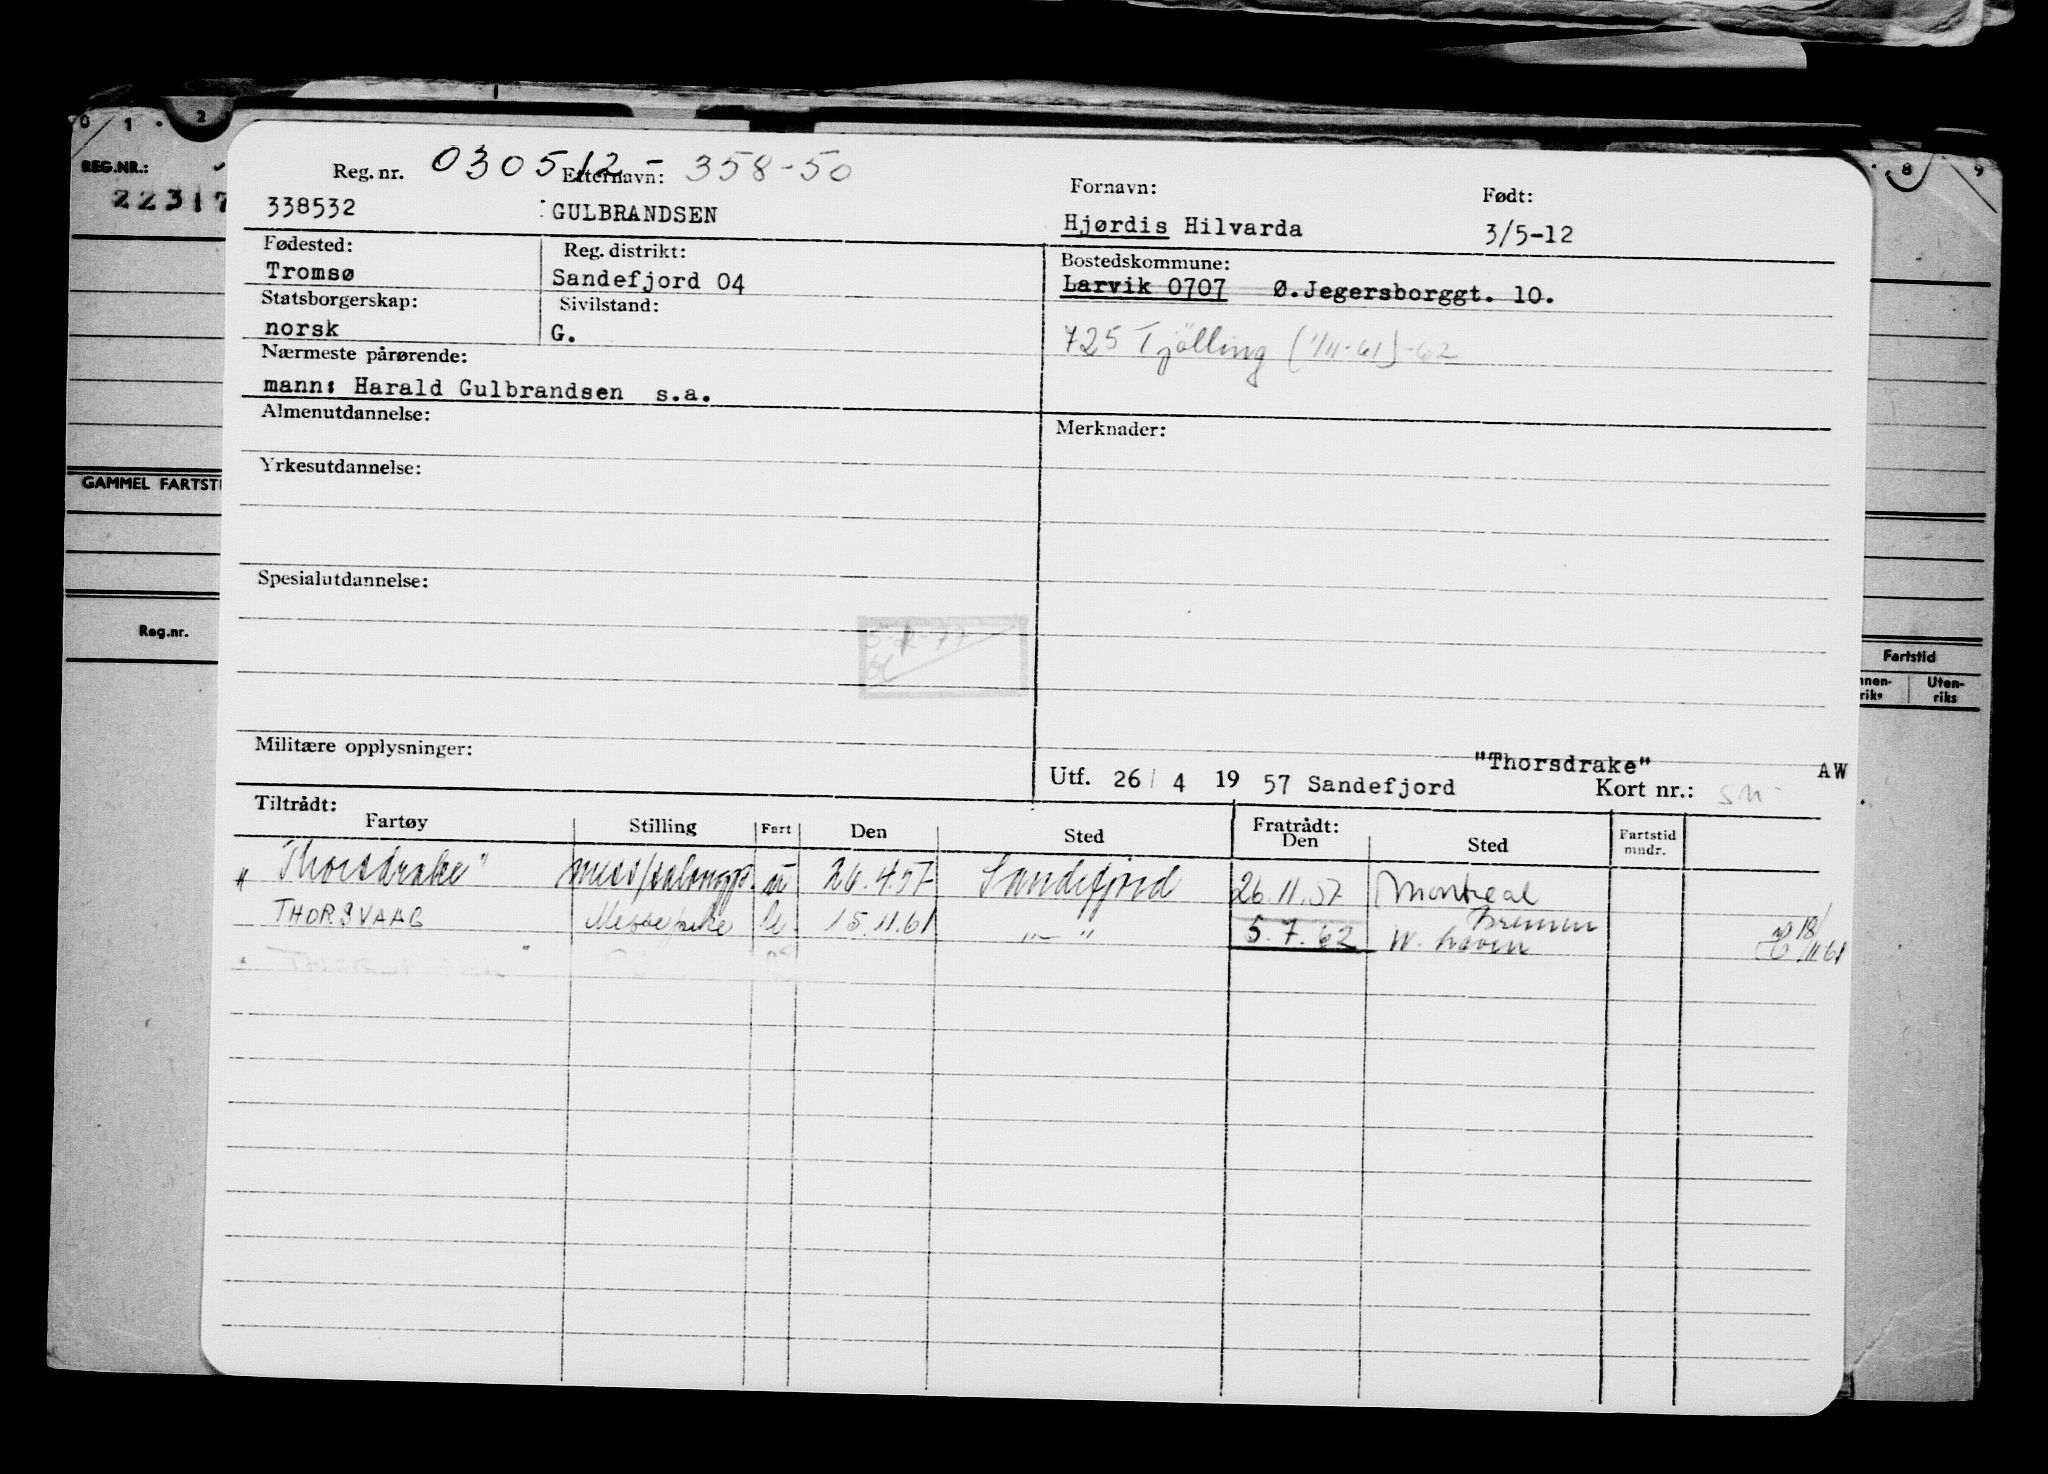 0 1 2 8 9
REG.NR.:
22317
Reg. nr. 030512-358-50 Etternavn: Fornavn: Født:
338532 GULBRANDSEN Hjørdis Hilvarda 3/5-12
Fødested: Reg. distrikt: Bostedskommune:
Tromsø Sandefjord 04 Larvik 0707 Ø.Jegersborggt. 10.
Statsborgerskap: Sivilstand:
norsk G. 725 Tjølling (1/11-61)-62
Nærmeste pårørende:
mann: Harald Gulbrandsen s.a.
Almenutdannelse: Merknader:
Yrkesutdannelse:
GAMMEL FARTSTI
Spesialutdannelse:
Reg.nr.
Fartstid
nnen-riks Uten-riks
Militære opplysninger:
"Thorsdrake" AW
Utf. 26/ 4 19 57 Sandefjord Kort nr.:
Tiltrådt: Fratrådt:
Fartøy Stilling Fart Den Sted Den Sted Fartstid mndr.
"Thorsdrake" u 26.4.57 Sandefjord 26.11.57 Montreal
THORSVAAG Messepike 15.11.61 -"- 5.7.62 Bremen
W. haven 18/11 61